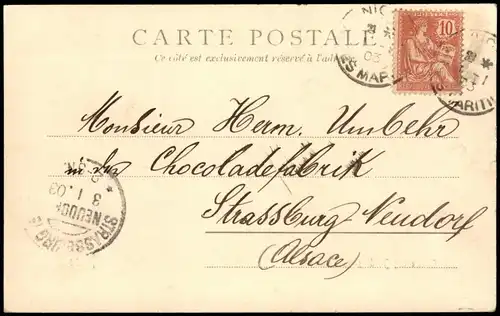 CARTE POSTALE
Ce côté est exclusivement réservé à l'ad
NIC
03
ES MAR
POSTES
10
ARITI
Monsieur Herm. Umbehr
in der Chocoladefabrik
Strassburg-Neudorf
(Alsace)
STRASSBURG
NEUDORF
3 1.03